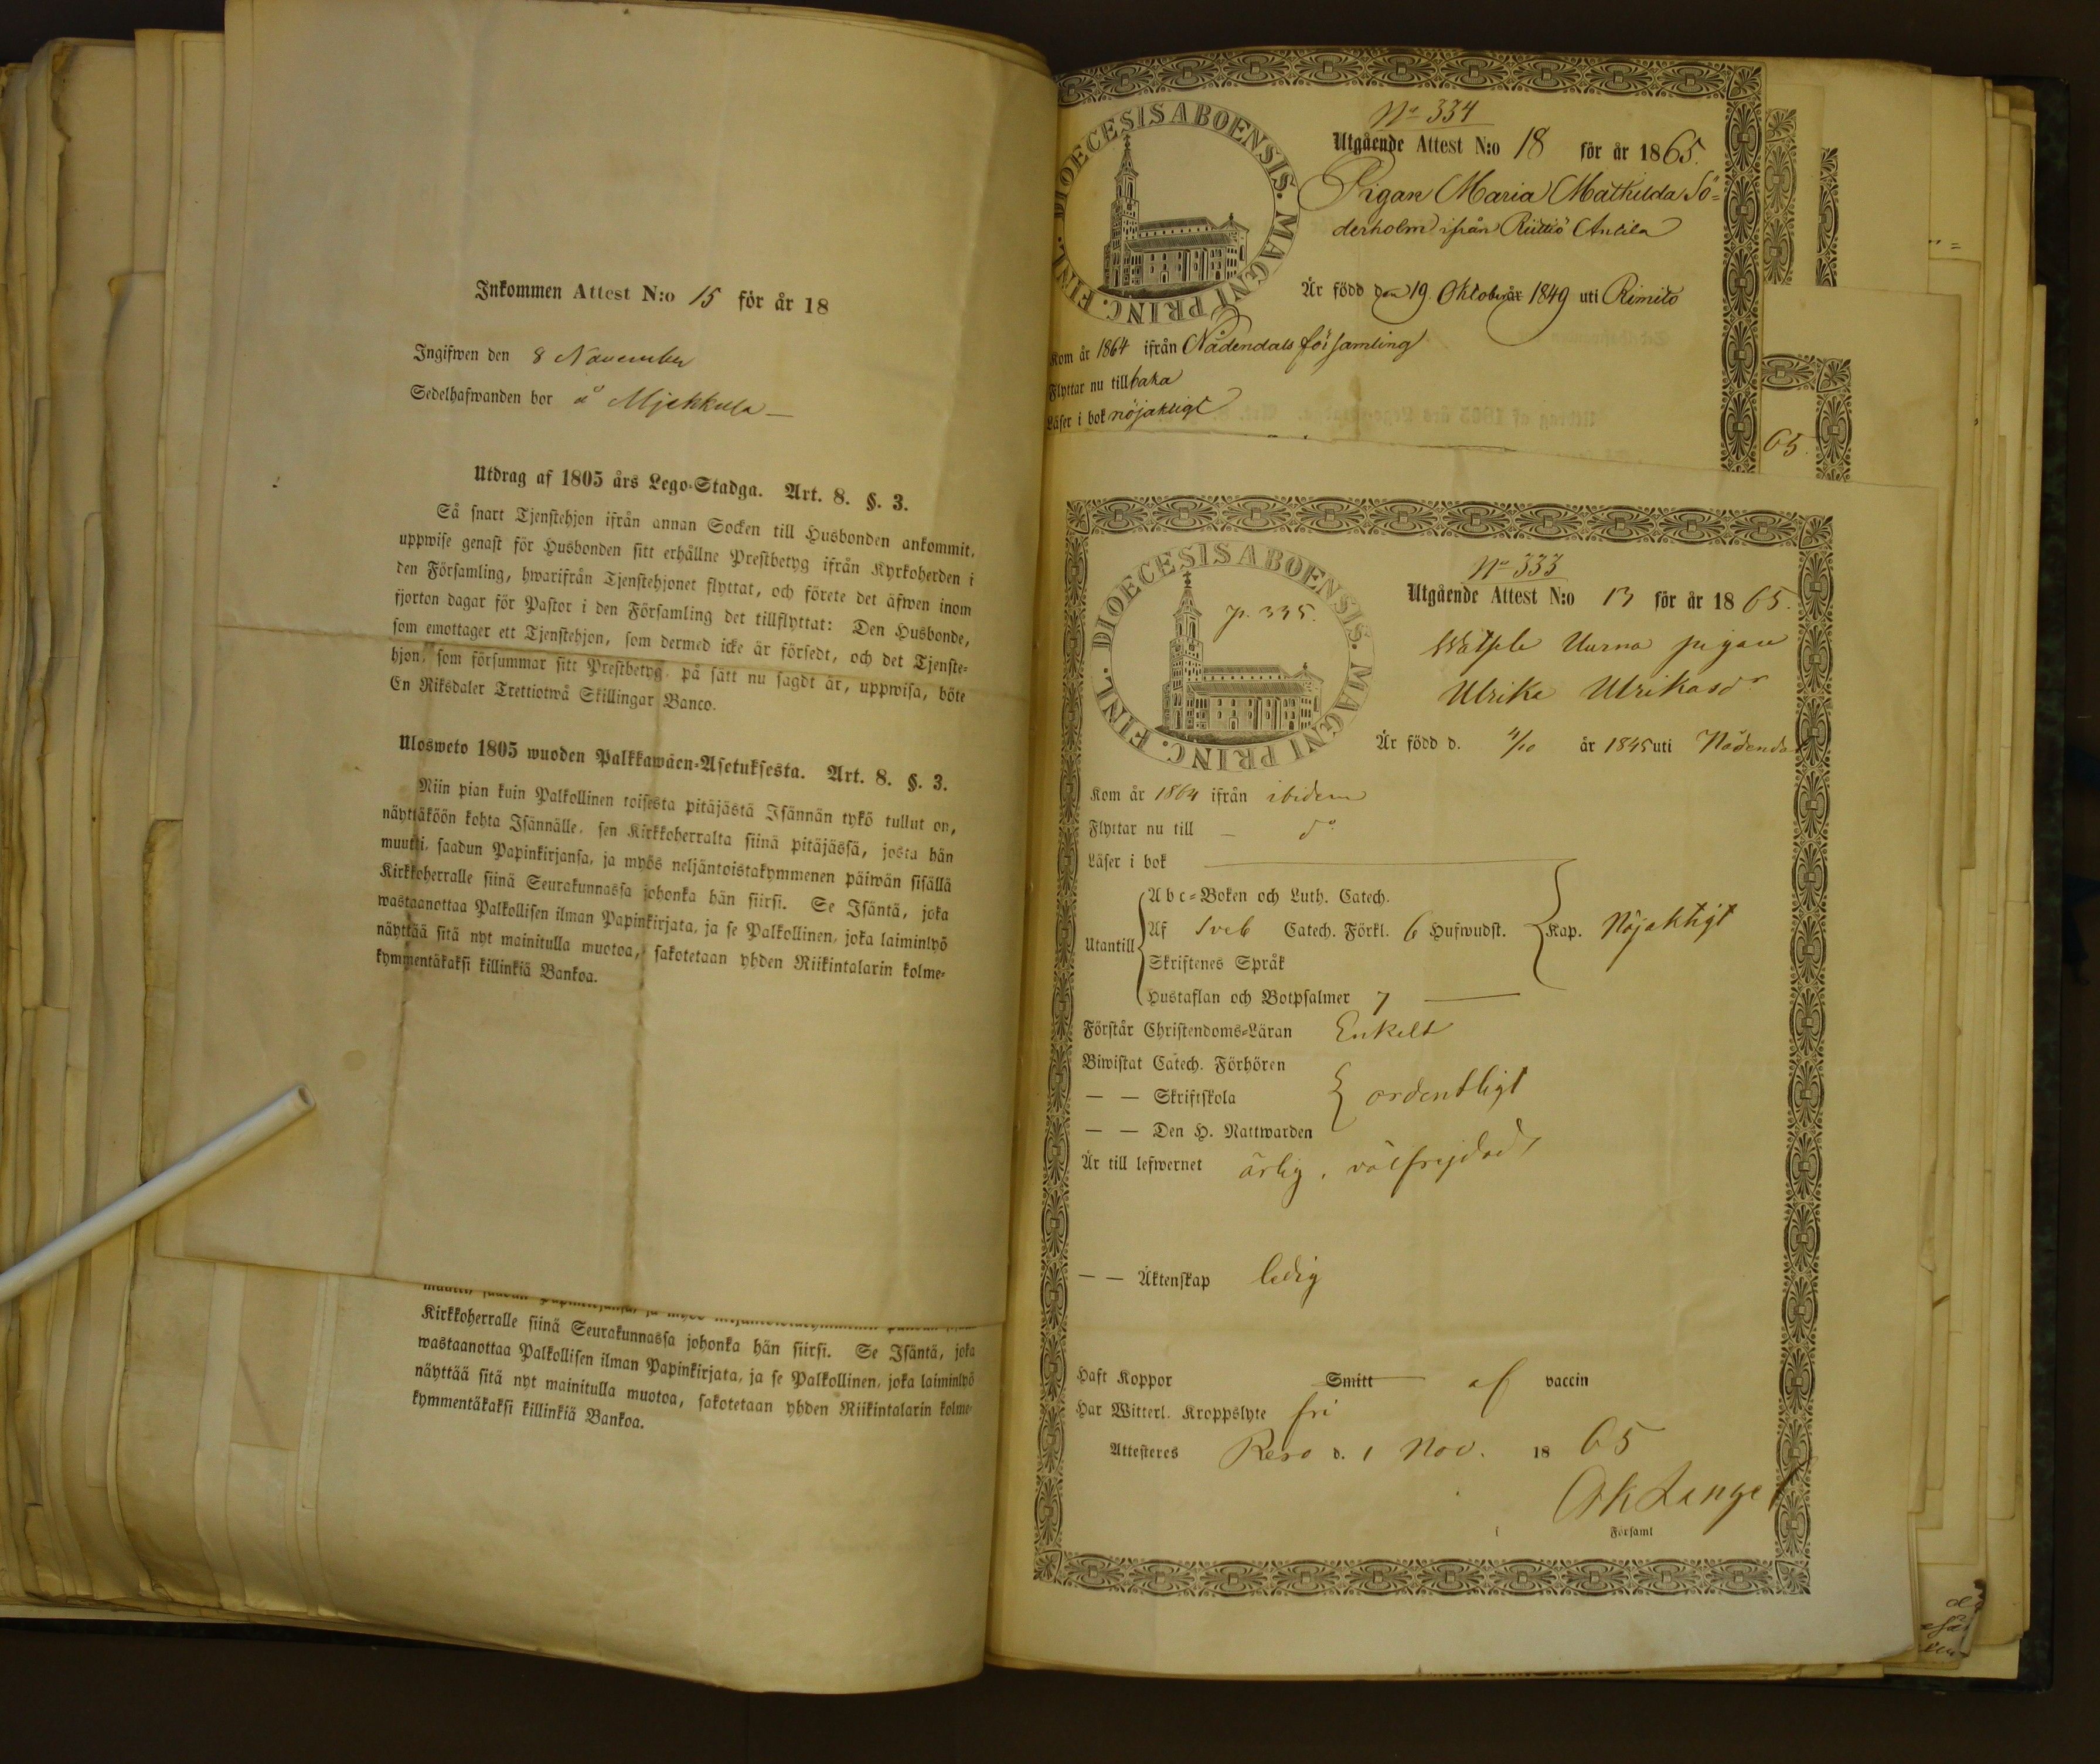 Inkommen Attest N:o 15 för år 18
Ingifwen den 8 November
Sedelhafwanden bor å Mjekkula
Utdrag af 1805 års Lego-Stadga. Art. 8. §. 3.
Så snart Tjenstehjon ifrån annan Socken till Husbonden ankommit,
uppwise genast för Husbonden sitt erhållne Prestbetyg ifrån Kyrkoherden i
den Församling, hwarifrån Tjenstehjonet flyttat, och förete det äfwen inom
fjorton dagar för Pastor i den Församling det tillflyttat: Den Husbonde,
som emottager ett Tjenstehjon, som dermed icke är försedt, och det Tjenste-
hjon, som försummar sitt Prestbetyg, på sätt nu sagdt är, uppwisa, böte
En Riksdaler Trettiotwå Skillingar Banco.
Ulosweto 1805 wuoden Palkkawäen-Asetuksesta. Art. 8. §. 3.
Niin pian kuin Palkollinen toisesta pitäjästä Isännän tykö tullut on,
näyttäköön kohta Isännälle, sen Kirkkoherralta siinä pitäjässä, josta hän
muutti, saadun Papinkirjansa, ja myös neljäntoistakymmenen päiwän sisällä
Kirkkoherralle siinä Seurakunnassa johonka hän siirsi. Se Isäntä, joka
wastaanottaa Palkollisen ilman Papinkirjata, ja se Palkollinen, joka laiminlyö
näyttää sitä nyt mainitulla muotoa, sakotetaan yhden Riikintalarin kolme-
kymmentäkaksi killinkiä Bankoa.
Kirkkoherralle siinä Seurakunnassa johonka hän siirsi. Se Isäntä, joka
wastaanottaa Palkollisen ilman Papinkirjata, ja se Palkollinen, joka laiminlyö
näyttää sitä nyt mainitulla muotoa, sakotetaan yhden Riikintalarin kolme-
kymmentäkaksi killinkiä Bankoa.
FINL. DIOECESIS ABOENSIS. MAGNI PRINC.
No 334
Utgående Attest N:o 18 för år 1865.
Pigan Maria Mathilda Sö-
derholm ifrån Rüttiö Antila
Är född den 19 Oktober år 1849 uti Rimito
Kom år 1864 ifrån Nådendals församling
Flyttar nu tillbaka
Läser i bok nöjaktigt
65.
FINL. DIOECESIS ABOENSIS. MAGNI PRINC.
p. 335.
No 333
Utgående Attest N:o 13 för år 1865.
Uurna pigan
Ulrika Ulrikasdr
Är född d. 4/10 år 1845 uti Nådendal
Kom år 1864 ifrån ibidem
Flyttar nu till — do
Läser i bok
Utantill
Abc-Boken och Luth. Catech.
Af Sveb Catech. Förkl. 6 Hufwudst. Kap. Nöjaktigt
Skriftenes Språk
Hustaflan och Botpsalmer 7
Förstår Christendoms-Läran Enkelt
Biwistat Catech. Förhören
— — Skriftskola ordentligt
— — Den H. Nattwarden
Är till lefwernet ärlig, välfrejdad
— — Äktenskap ledig
Haft Koppor Smitt af vaccin
Har Witterl. Kroppslyte fri
Attesteres Reso d. 1 Nov. 1865
GK Lange
i Forsaml